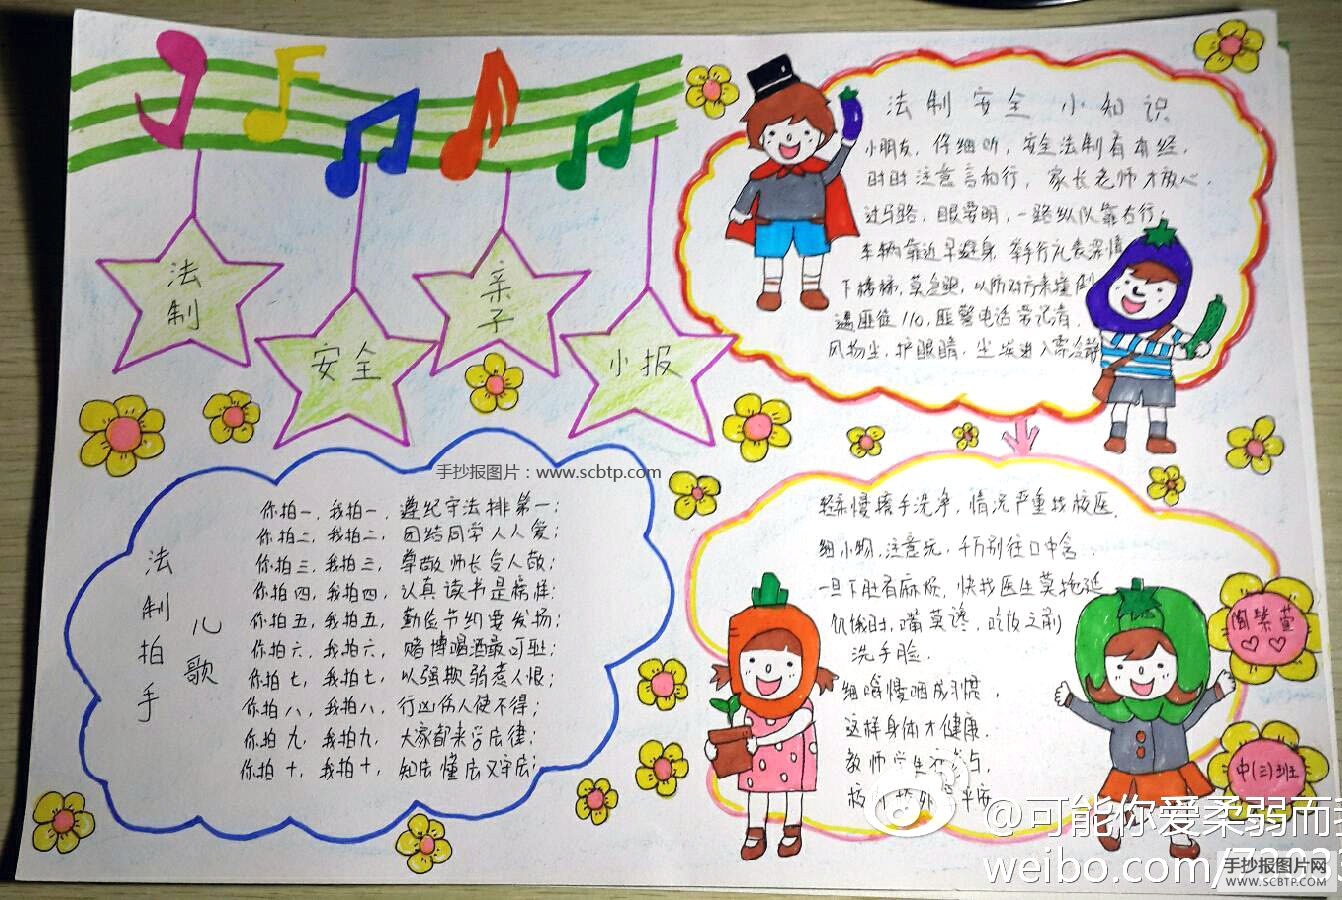 法制
安全
亲子
小报
法制安全小知识
小朋友，仔细听，安全法制有本经，
时时注意言和行，家长老师才放心，
过马路，眼要明，一路纵队靠右行；
车辆靠近早避身，举手行礼表深情
下楼梯，莫急躁，以防对方来撞倒
遇匪徒110，匪警电话常记清，
风物尘，护眼睛，尘埃进入
轻柔慢擦手洗净，情况严重找校医，
细小物，注意玩，千万别往口中含
一旦下肚有麻烦，快找医生莫拖延
饥饿时，嘴莫馋，吃饭之前
洗手脸．
细嚼慢咽成习惯，
这样身体才健康．
教师学生
平安
陶紫萱
中(三)班
法制拍手
儿歌
你拍一，我拍一，遵纪守法排第一；
你拍二，我拍二，团结同学人人爱；
你拍三，我拍三，尊敬师长令人敬；
你拍四，我拍四，认真读书是榜样；
你拍五，我拍五，勤俭节约要发扬；
你拍六，我拍六，赌博喝酒最可耻；
你拍七，我拍七，以强欺弱惹人恨；
你拍八，我拍八，行凶伤人使不得；
你拍九，我拍九，大家都来学法律；
你拍十，我拍十，知法懂法又守法；
手抄报图片：www.scbtp.com
@可能你爱柔弱而
weibo.com/
手抄报图片网
WWW.SCBTP.COM